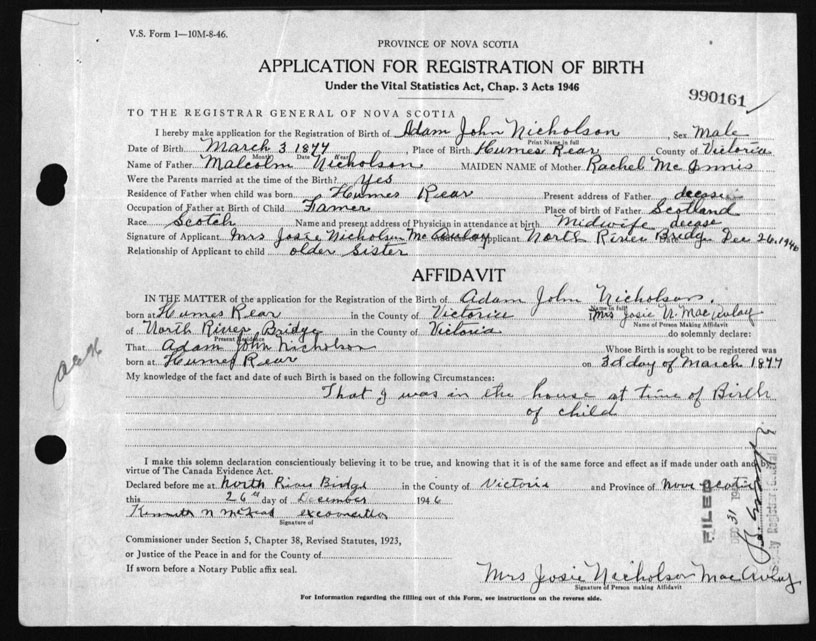 V.S. Form 1—10M-8-46.
PROVINCE OF NOVA SCOTIA
APPLICATION FOR REGISTRATION OF BIRTH
Under the Vital Statistics Act, Chap. 3 Acts 1946
990161
TO THE REGISTRAR GENERAL OF NOVA SCOTIA
I hereby make application for the Registration of Birth of Adam John Nicholson, Sex Male
Print Name in full
Date of Birth March 3 1877, Place of Birth Humes Rear County of Victoria
Month Date Year
Name of Father Malcolm Nicholson MAIDEN NAME of Mother Rachel Mc Innis
Were the Parents married at the time of the Birth? Yes
Residence of Father when child was born Humes Rear Present address of Father decase
Occupation of Father at Birth of Child Famer Place of birth of Father Scotland
Race Scotch Name and present address of Physician in attendance at birth Midwife decase
Signature of Applicant Mrs Josie Nicholson Mc Aulay Applicant North River Bredg Dec 26, 1946
Relationship of Applicant to child older Sister
AFFIDAVIT
IN THE MATTER of the application for the Registration of the Birth of Adam John Nicholson,
Name in full
born at Humes Rear in the County of Victoria Mrs Josie N. Macaulay
Name of Person Making Affidavit
of North River Bridge in the County of Victoria do solemnly declare:
Present Residence
That Adam John Nicholson Whose Birth is sought to be registered was
born at Humes Rear on 3d day of March 1877
My knowledge of the fact and date of such Birth is based on the following Circumstances:
That I was in the house at time of Birth
of child
I make this solemn declaration conscientiously believing it to be true, and knowing that it is of the same force and effect as if made under oath and by
virtue of The Canada Evidence Act.
Declared before me at North River Bridge in the County of Victoria and Province of Nova Scotia
this 26th day of December 1946
Kenneth N
Signature of
Commissioner under Section 5, Chapter 38, Revised Statutes, 1923,
or Justice of the Peace in and for the County of
If sworn before a Notary Public affix seal.
Mrs Josie Nicholson MacAulay
Signature of Person making Affidavit
For Information regarding the filling out of this Form, see instructions on the reverse side.
FILED
DEC 31
Deputy Registrar General